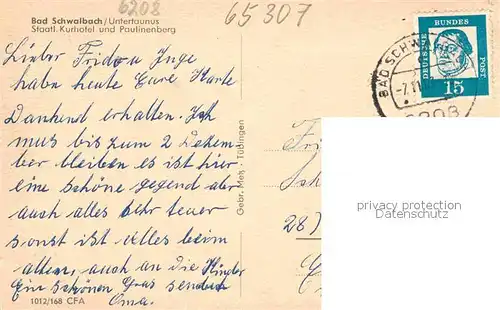 6208
65307
Bad Schwalbach/Untertaunus
Staatl. Kurhotel und Paulinenberg
Lieber Frido u Inge
habe heute Eure Karte
Dankend erhalten. Ich
mus bis zum 2 Dezem-
ber bleiben es ist hier
eine schöne gegend aber
auch alles sehr teuer
sonst ist alles beim
alten, auch an die Kinder
Ein schönen Grus sendet
Oma.
1012/168 CFA
Gebr. Metz · Tübingen
DEUTSCHE
BUNDES
POST
15
BAD SCHW
-7.11.
6208
Fri
Sch
28)
privacy protection
Datenschutz